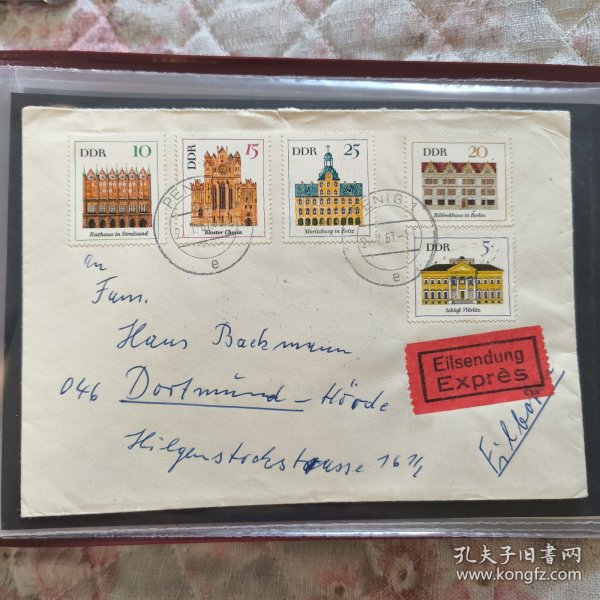 DDR 10
Rathaus in Stralsund
DDR 15
Kloster Chorin
DDR 25
Moritzburg in Zeitz
DDR 20
Ribbeckhaus in Berlin
DDR 5
Schloß Wörlitz
PENIG 1
e
e
An
Fam.
Hans Bachmann
046 Dortmund-Hörde
Hilgenstockstrasse 16
Eilsendung
Exprès
孔夫子旧书网
www.kongfz.com